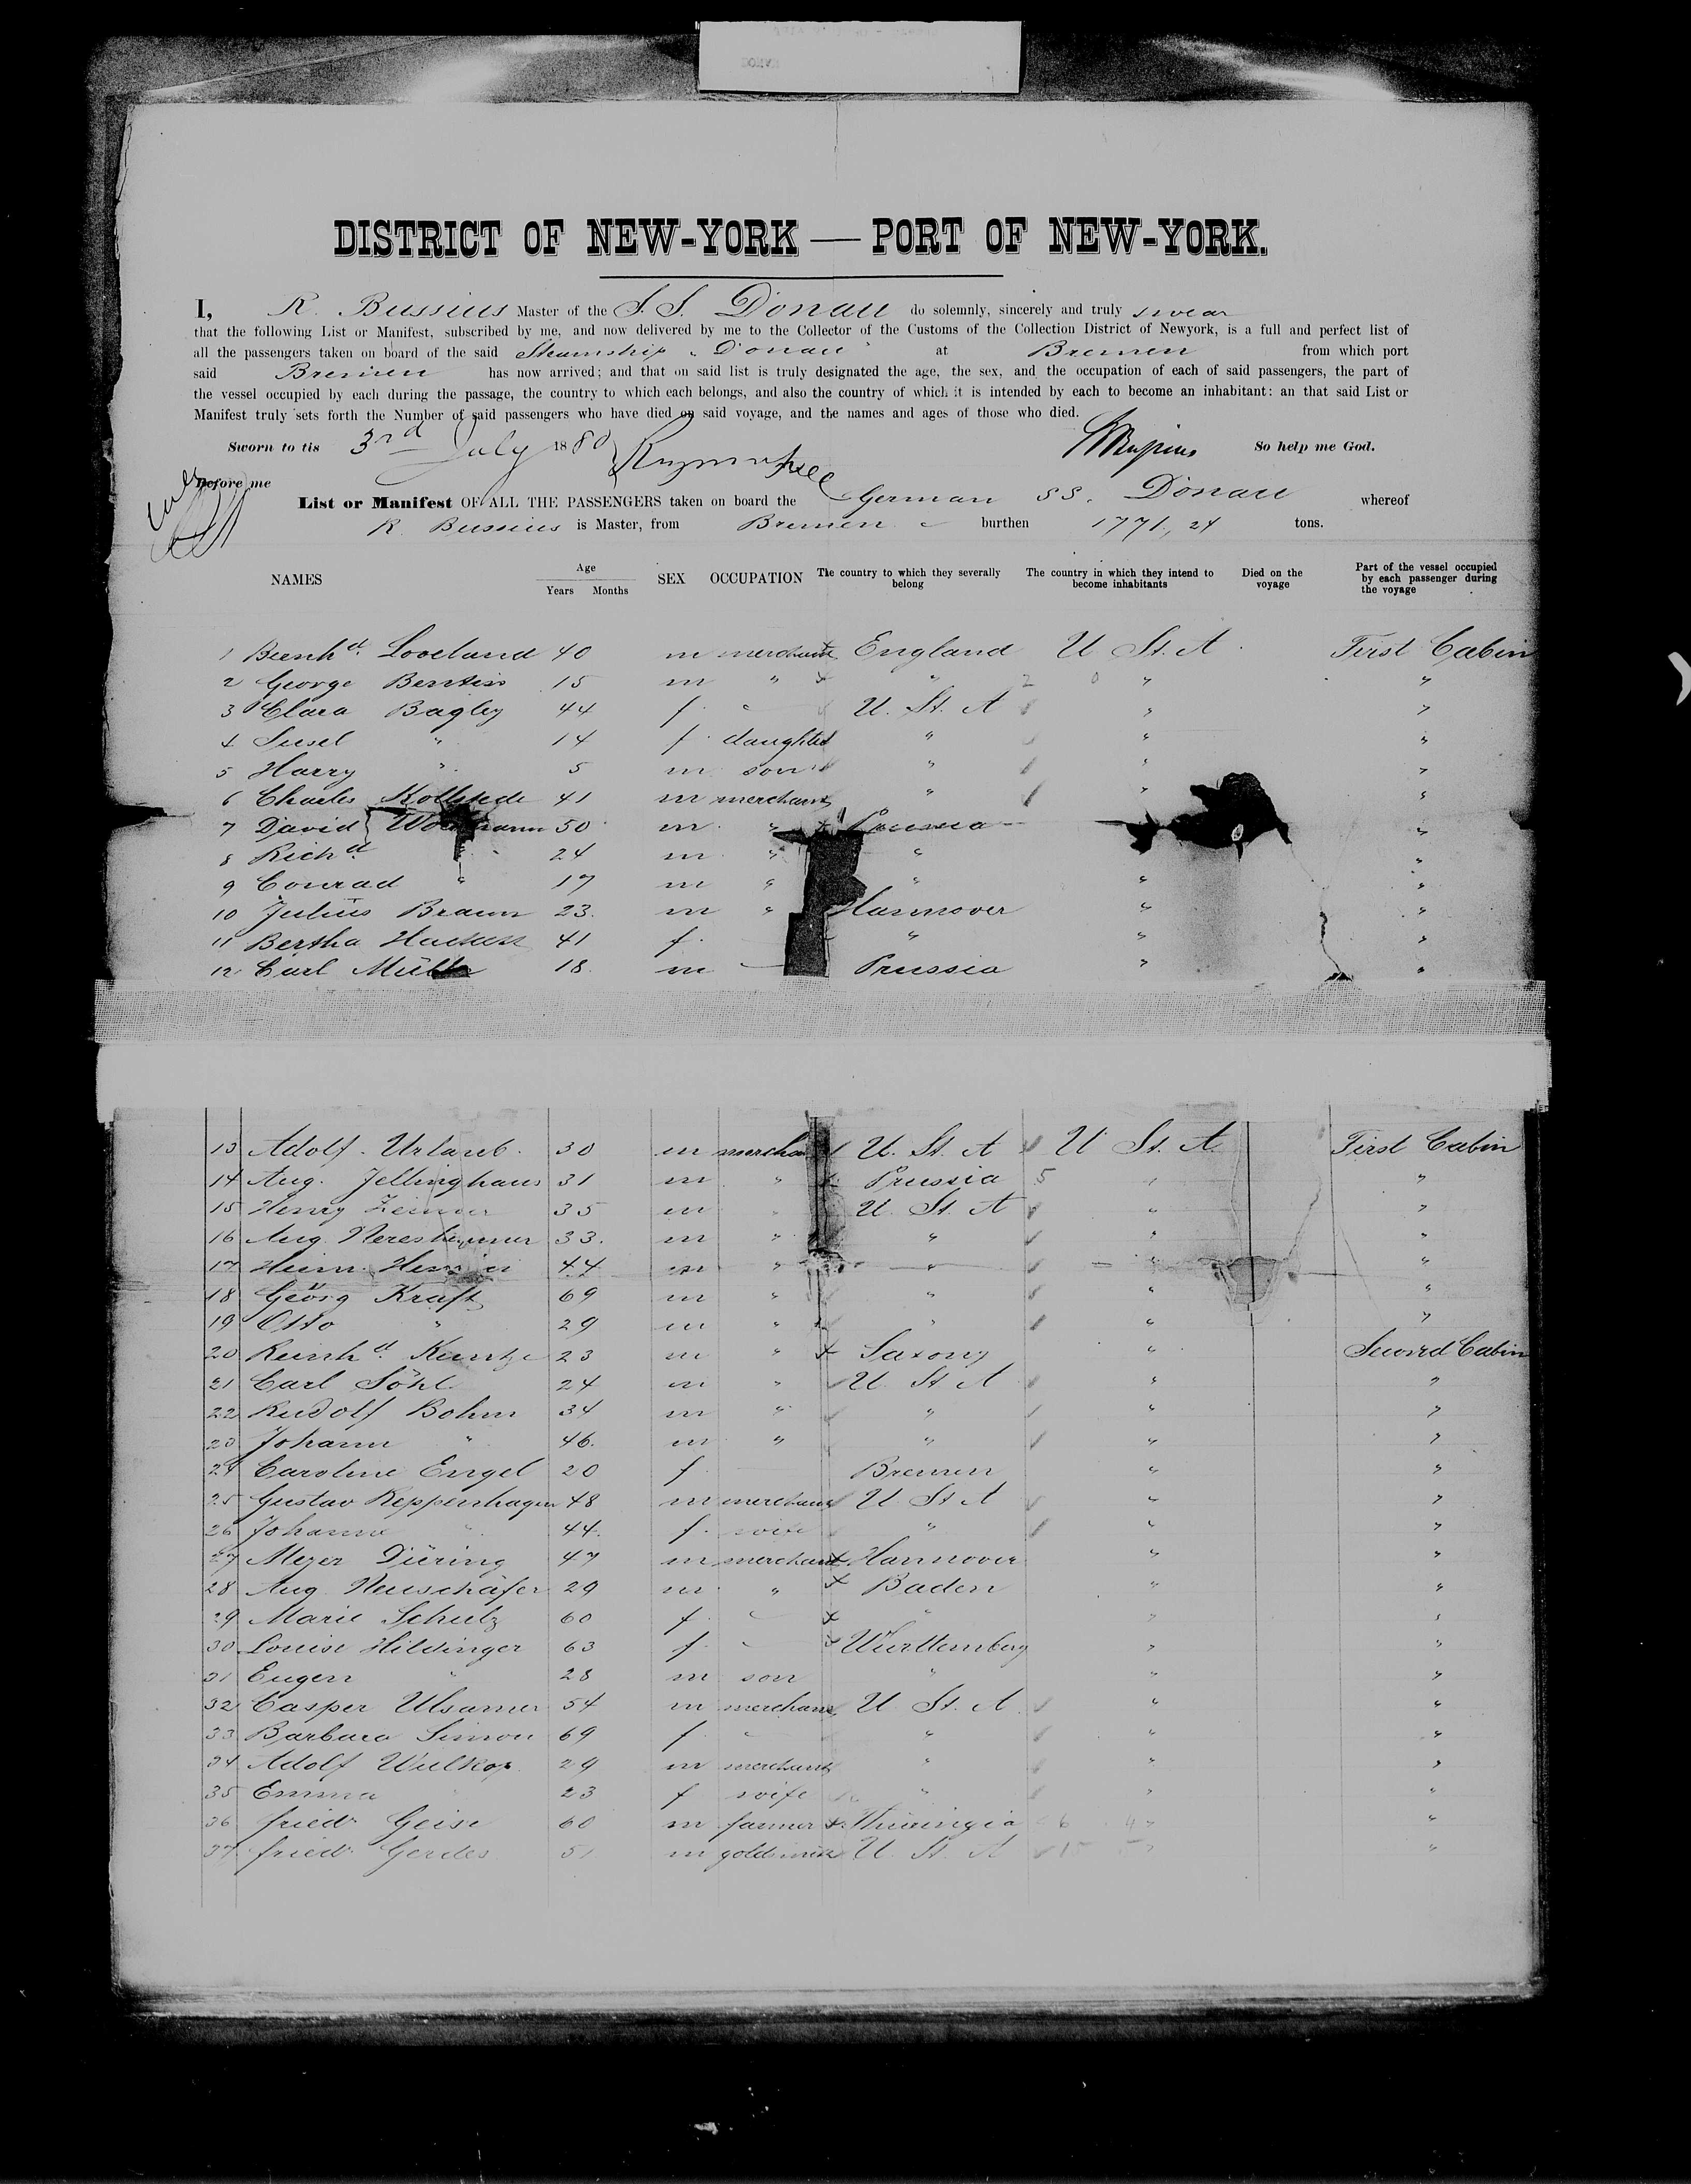 DISTRICT OF NEW-YORK — PORT OF NEW-YORK.
I, R. Bussius Master of the S. S. Donau do solemnly, sincerely and truly swear
that the following List or Manifest, subscribed by me, and now delivered by me to the Collector of the Customs of the Collection District of Newyork, is a full and perfect list of
all the passengers taken on board of the said Steamship „Donau" at Bremen from which port
said Bremen has now arrived; and that on said list is truly designated the age, the sex, and the occupation of each of said passengers, the part of
the vessel occupied by each during the passage, the country to which each belongs, and also the country of which it is intended by each to become an inhabitant: an that said List or
Manifest truly sets forth the Number of said passengers who have died on said voyage, and the names and ages of those who died.
Sworn to tis 3rd July 1880 So help me God.
Before me
List or Manifest OF ALL THE PASSENGERS taken on board the German SS. Donau whereof
R Bussius is Master, from Bremen burthen 1771,24 tons.
NAMES Age Years Months SEX OCCUPATION The country to which they severally belong The country in which they intend to become inhabitants Died on the voyage Part of the vessel occupied by each passenger during the voyage
1 Bernhd. Loveland 40 m merchant England U St. A. First Cabin
2 George 15 m " " " "
3 Clara Bagley 44 f. - U. St. A " "
4 Susel " 14 f. daughter " " "
5 Harry " 5 m son " " "
6 Charles 41 m merchant " " "
7 David 50 m. " Prussia "
8 Richd " 24 m " " "
9 Conrad " 17 m " " " "
10 Julius Braun 23. m " Hannover " "
11 Bertha 41 f. " " "
12 Carl 18. m - Prussia " "
13 Adolf Urlaub. 30 m U. St. A U St. A. First Cabin
14 Aug. Jellinghaus 31 m " Prussia 5 " "
15 Henry 35 m " U. St. A " "
16 Aug. Neresheimer 33. m " " " "
17 Heinr. 44 m " " " "
18 Georg Kraft 69 m " " " "
19 Otto " 29 m " " " "
20 Reinhd. Kuntze 23 m " Saxony " Second Cabin
21 Carl Söhl 24 m " U. St A " "
22 Rudolf Bohm 34 m " " " "
23 Johann " 46. m " " " "
24 Caroline Engel 20 f. Bremen " "
25 Gustav Keppenhagen 48 m merchant U St A " "
26 Johanne " 44. f. wife " " "
27 Meyer Düring 47 m merchant Hannover " "
28 Aug. Neuschäfer 29 m " Baden " "
29 Marie Schulz 60 f. - " " "
30 Louise Hildinger 63 f. - Württemberg " "
31 Eugen " 28 m son " " "
32 Casper Ulsamer 54 m merchant U. St. A. " "
33 Barbara Simon 69 f. - " " "
34 Adolf Wulkop. 29 m merchant " " "
35 Emma " 23 f wife " " "
36 friedr. Geise 60 m farmer Thüringia " "
37 friedr. Gerdes 51 m goldsmith U. St. A " "